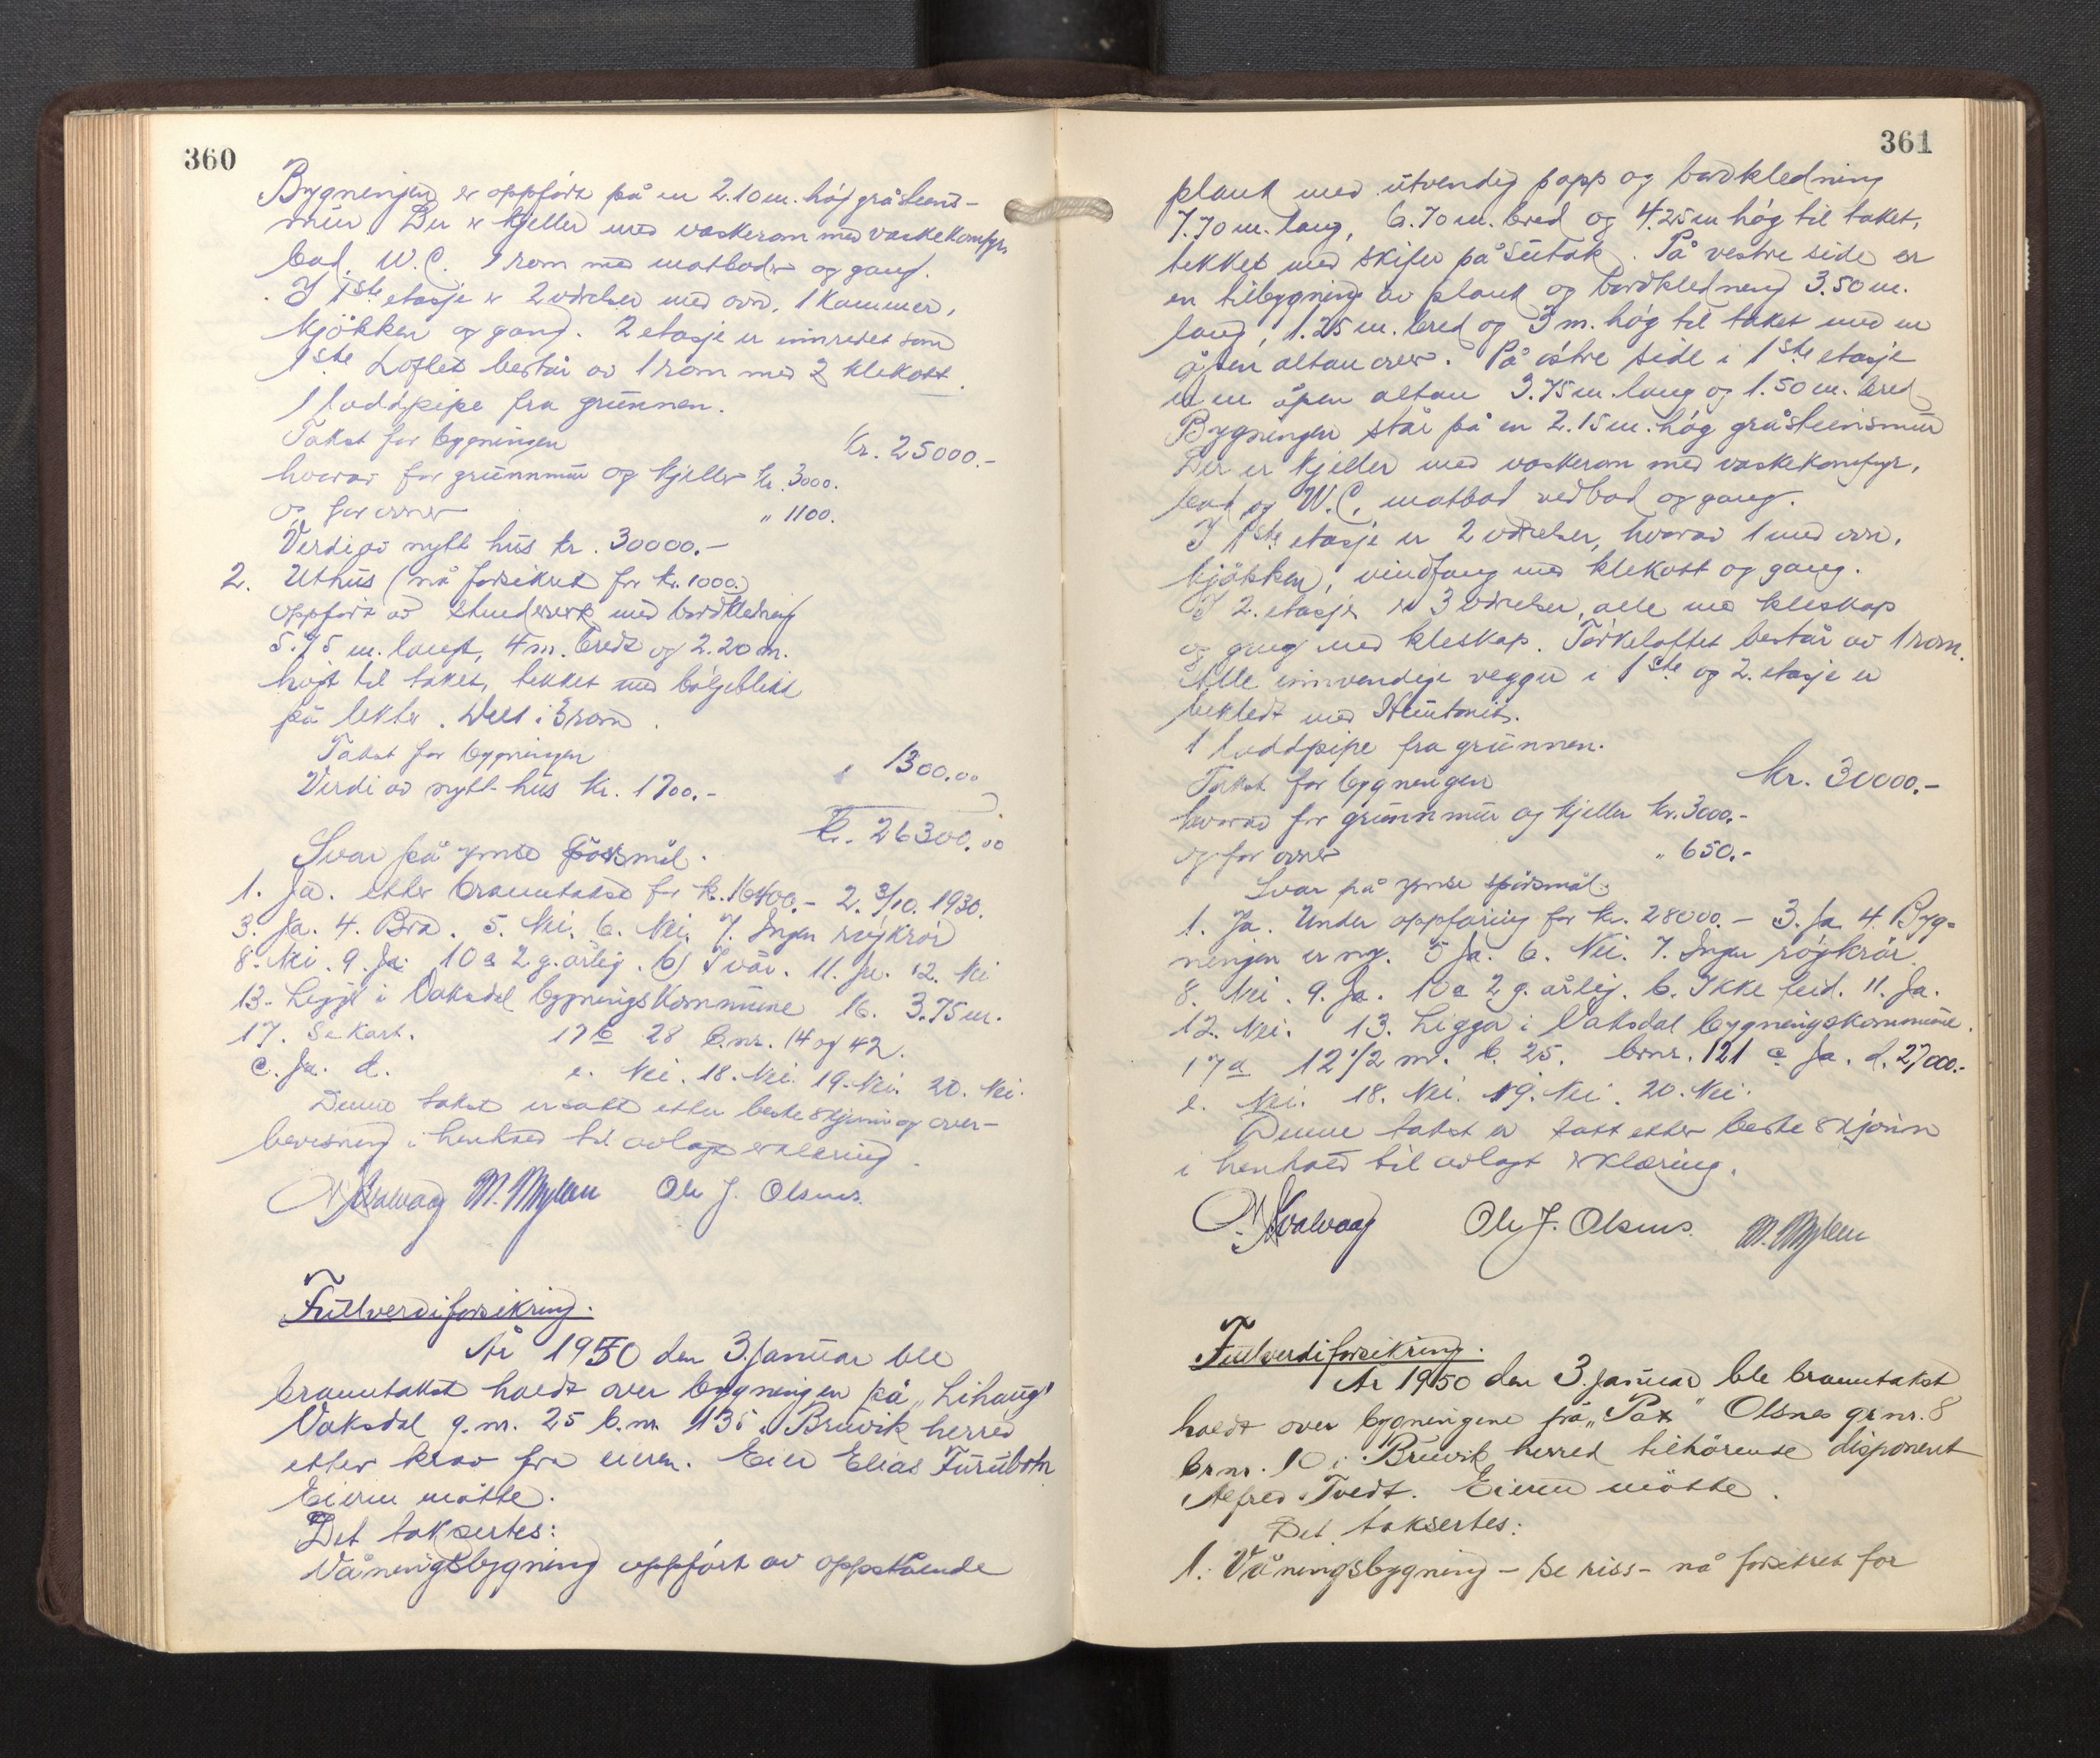 360
Bygningen er oppført på en 2.10 m. høj gråsteins-
mur. Der er kjeller med vaskerom med vaskekomfyr,
bad, W.C. 1 rom med matboder og gang.
I 1ste etasje er 2 værelser med ovn, 1 kammer,
kjøkken og gang. 2 etasje er innredet som
1ste Loftet består av 1 rom med 2 klekott.
1 loddpipe fra grunnen.
Takst for bygningen Kr. 25000.-
hvorav for grunnmur og kjeller kr. 3000.
og for ovner " 1100.
Verdi av nytt hus kr. 30000.-
2. Uthus (nå forsikret for kr. 1000.)
oppført av stenderverk med bordkledning
5.75 m. langt, 4 m. bredt og 2.20 m.
højt til taket, tekket med bølgeblikk
på lekter. Delt i 3 rom.
Takst for bygningen " 1300.00
Verdi av nytt hus kr. 1700.-
Kr. 26300.00
Svar på ymse spørsmål.
1. Ja. etter branntakst for kr. 16400.- 2. 3/10. 1930.
3. Ja. 4. Bra. 5. Nei. 6. Nei. 7. Ingen røykrør
8. Nei. 9. Ja. 10 a 2 g. årlig. b) I vår. 11. Ja. 12. Nei
13. Ligger i Vaksdal bygningskommune 16. 3.75 m.
17. Se kart. 17 b 28 b.nr. 14 og 42.
c. Ja. d. e. Nei. 18. Nei. 19. Nei. 20. Nei.
Denne takst er satt etter beste skjønn og over-
bevisning i henhold til avlagt erklæring.
N. Kvalvaag M. Mylen Ole J. Olsnes.
Fullverdiforsikring.
År 1950 den 3. Januar ble
branntakst holdt over bygningen på "Lihaug"
Vaksdal g.nr. 25 b.nr. 135 i Bruvik herred
etter krav fra eieren. Eier Elias Furubotn
Eieren møtte.
Det taksertes:
Våningsbygning oppført av oppstående
361
plank med utvendig papp og bordkledning
7.70 m. lang, 6.70 m. bred og 4.25 m høg til taket,
tekket med skifer på sutak. På vestre side er
en tilbygning av plank og bordkledning 3.50 m.
lang, 1.25 m. bred og 3 m. høg til taket med en
åpen altan over. På østre side i 1ste etasje
er en åpen altan 3.75 m. lang og 1.50 m. bred
Bygningen står på en 2.15 m. høg gråsteinsmur
Der er kjeller med vaskerom med vaskekomfyr,
bad og W.C, matbod vedbod og gang.
I 1ste etasje er 2 værelser, hvorav 1 med ovn,
kjøkken, vindfang med klekott og gang.
I 2. etasje er 3 værelser, alle med kleskap
og gang med kleskap. Tørkeloftet består av 1 rom.
Alle innvendige vegger i 1ste og 2. etasje er
bekledt med Huntonit.
1 loddpipe fra grunnen.
Takst for bygningen kr. 30000.-
hvorav for grunnmur og kjeller kr. 3000.-
og for ovner " 650.-
Svar på ymse spørsmål.
1. Ja. Under oppføring for kr. 28000.- 3. Ja 4. Byg-
ningen er ny. 5 Ja. 6. Nei. 7. Ingen røykrør.
8. Nei. 9. Ja. 10 a 2 g. årlig. b. Ikke feid. 11. Ja.
12. Nei. 13. Ligger i Vaksdal bygningskommune.
17 a 12 1/2 m. b. 25. brnr. 121 c Ja. d. 27000.-
e. Nei. 18. Nei. 19. Nei. 20. Nei.
Denne takst er satt etter beste skjønn
i henhold til avlagt erklæring.
N. Kvalvaag Ole J. Olsnes. M. Mylen
Fullverdiforsikring.
År 1950 den 3. Januar ble branntakst
holdt over bygningene på "Pax" Olsnes grnr. 8
brnr. 10 i Bruvik herred tilhørende disponent
Alfred Tvedt. Eieren møtte.
Det taksertes:
1. Våningsbygning - se riss - nå forsikret for